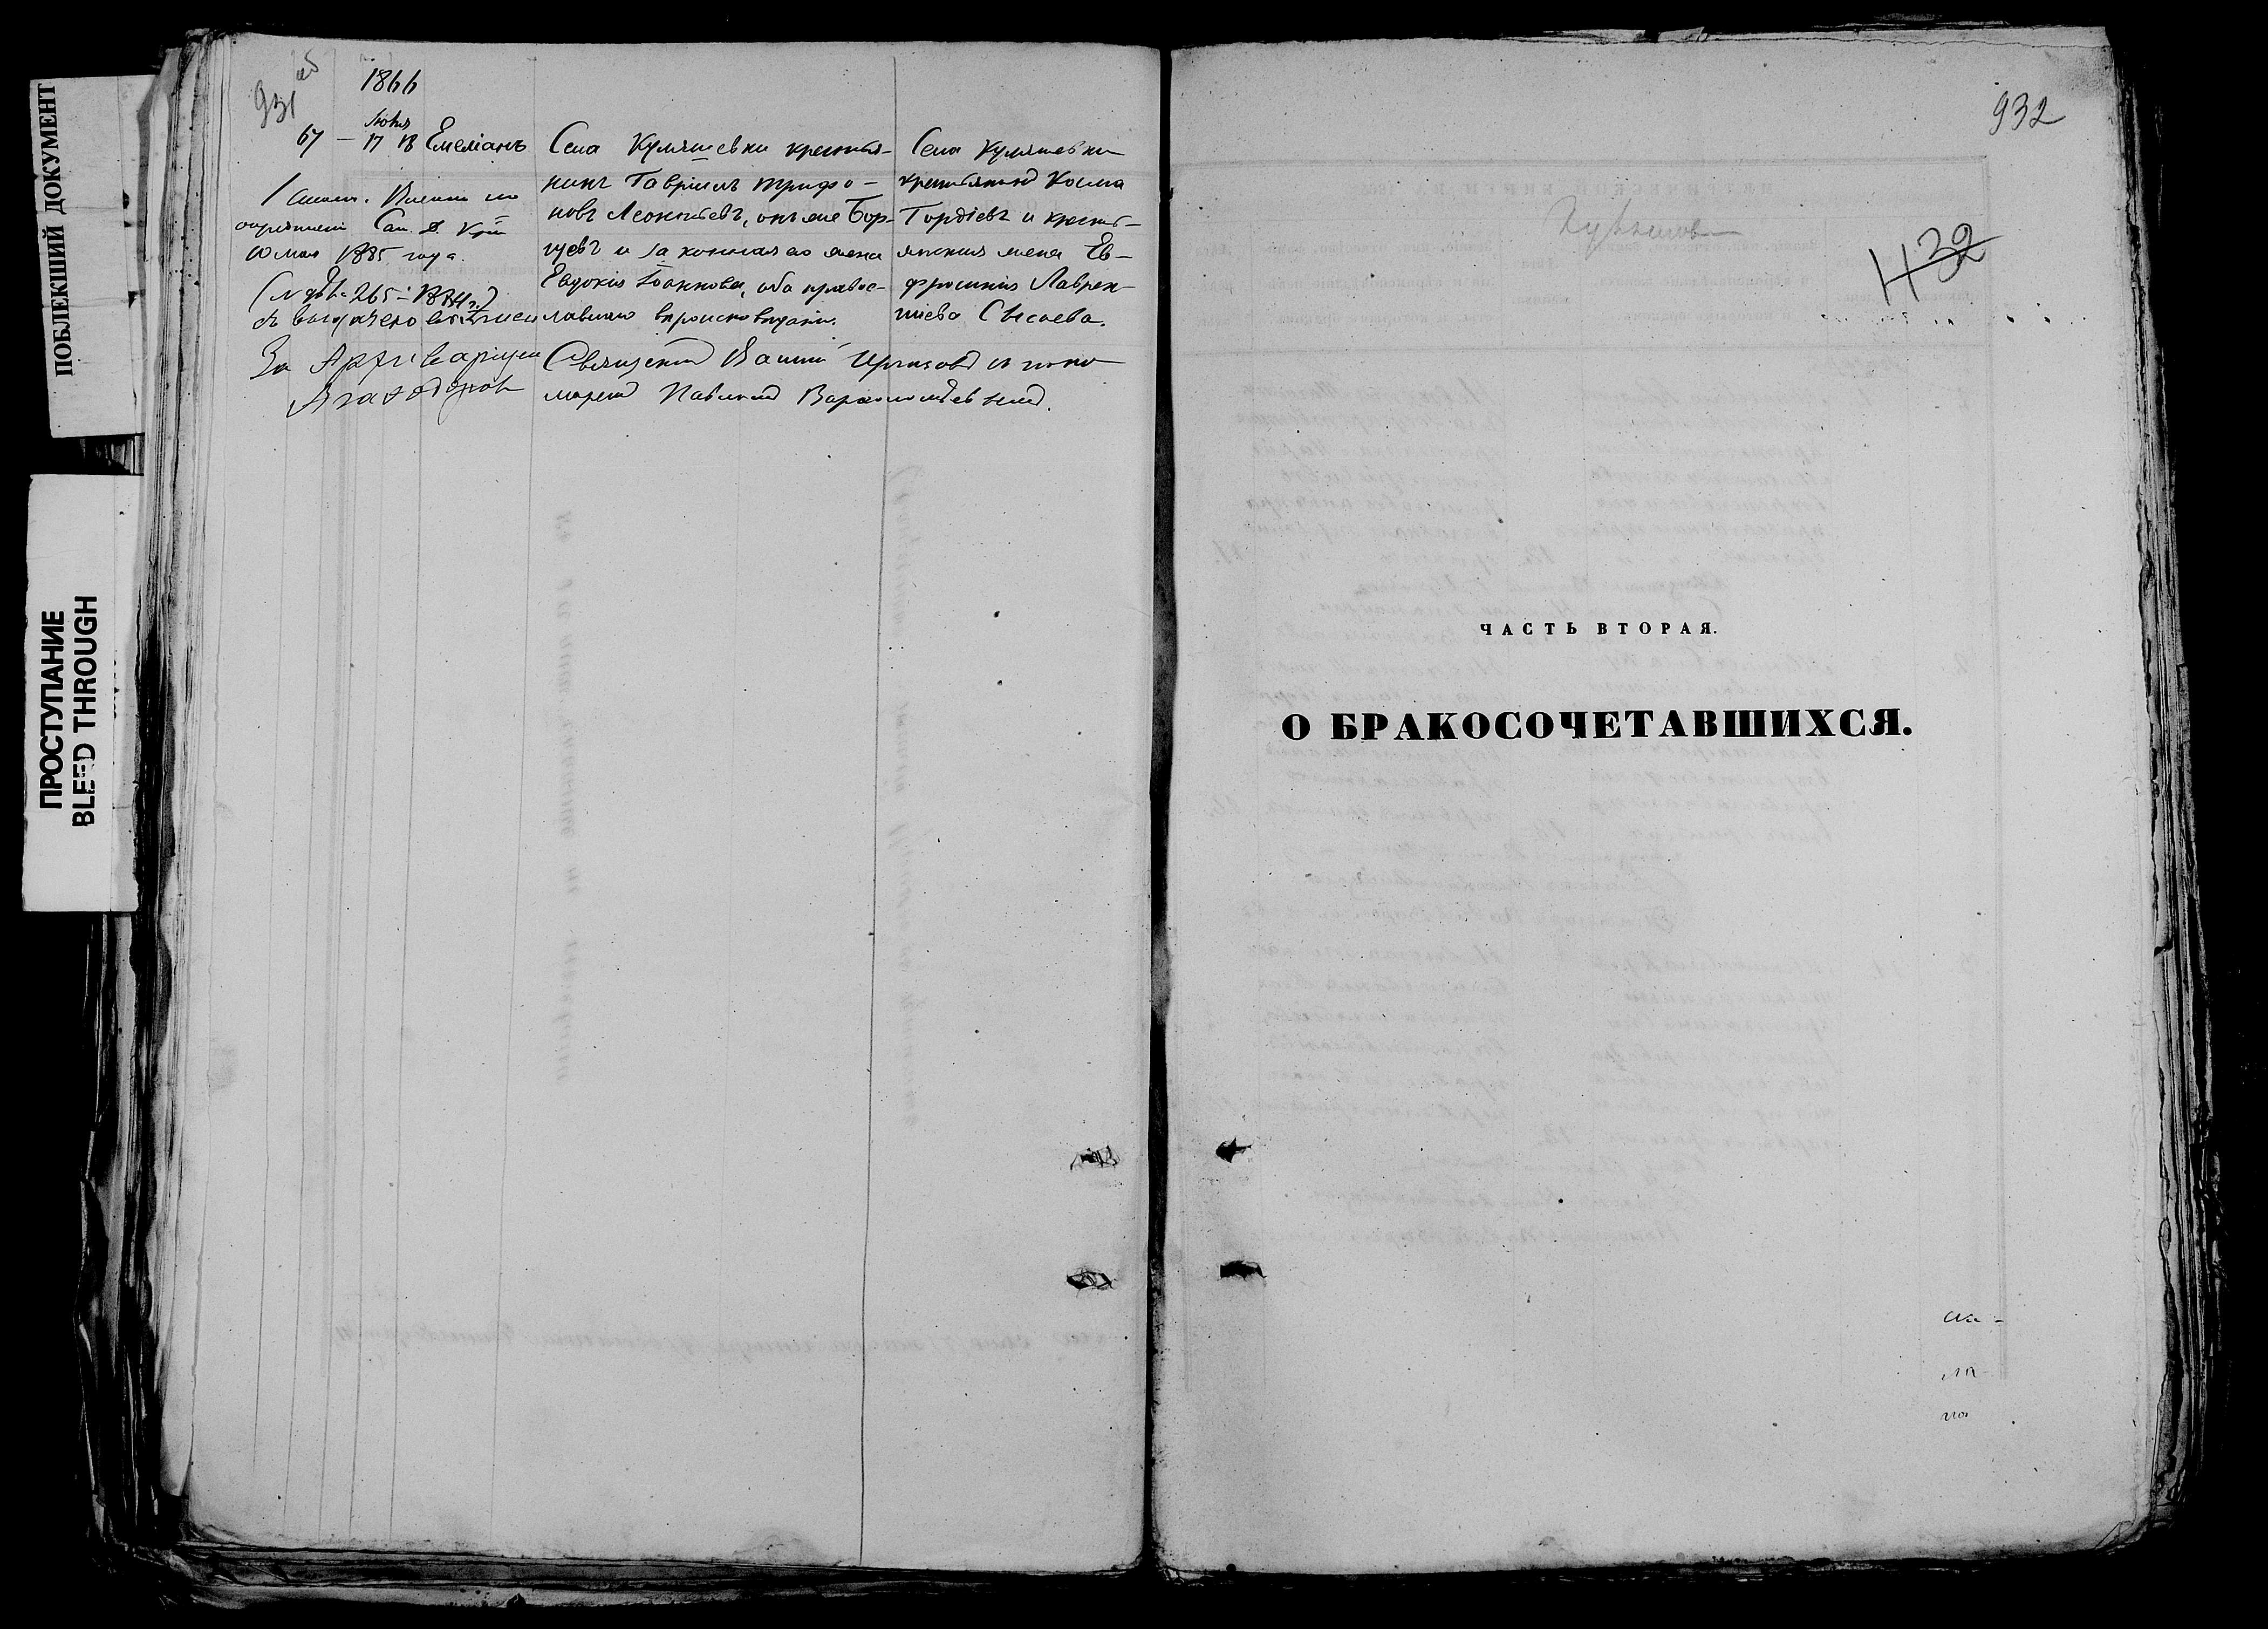 ПОБЛЕКШИЙ ДОКУМЕНТ
ПРОСТУПАНИЕ
BLEED THROUGH
931 об
1866
Июля
67 — 17 18 Емеліанъ
Села Кумашевки крестья-
нинъ Гавріилъ Трифо-
новъ Леонтьевъ, онъ же Бор-
цевъ и законная его жена
Евдокія Іоаннова, оба правос-
лавнаго вѣроисповѣданія.
Села Кумашевки
крестьянинъ Косма
Гордіевъ и крестьянская жена Ев-
фросинія Лаврен-
тіева Сысоева.
10 мая 1885 года.
265 - 1884 г.)
За Архиваріуса
Священникъ Василій с поно-
маремъ Павломъ Варѳоломѣевымъ.
932
432
ЧАСТЬ ВТОРАЯ.
О БРАКОСОЧЕТАВШИХСЯ.